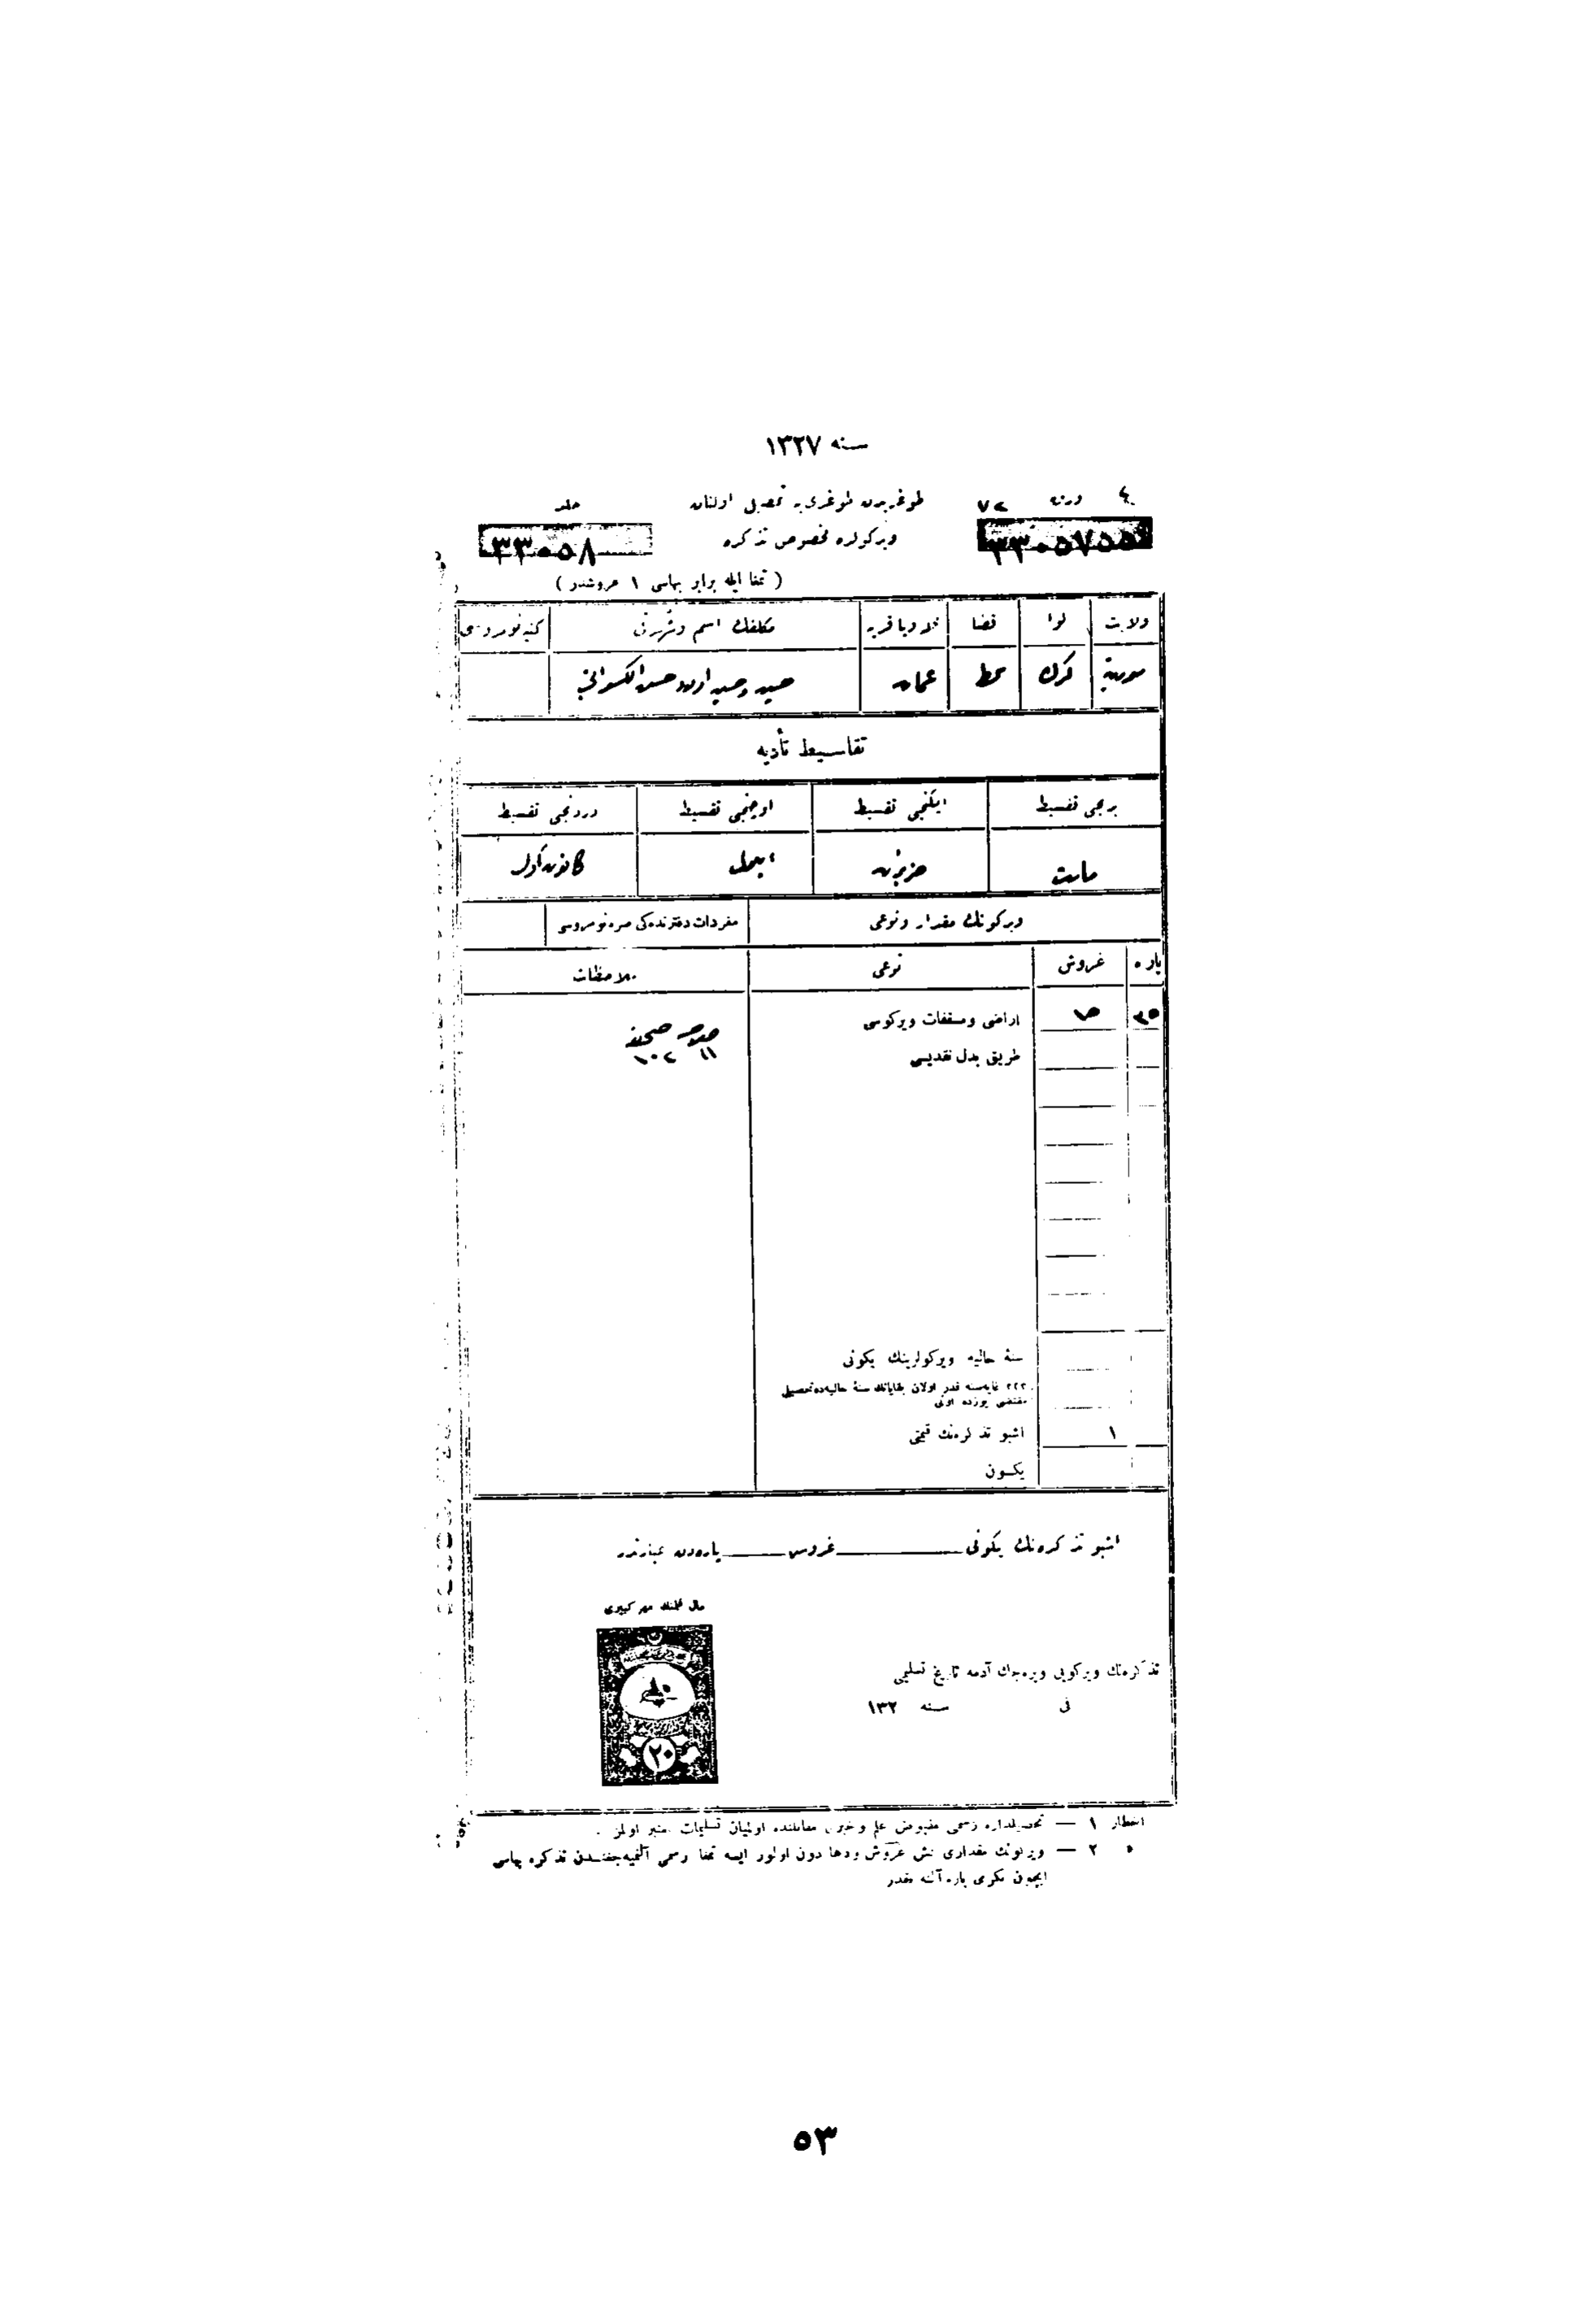 سنه ١٣٢٧
٤ ورنه ٧٢ طوغریدن طوغری یه تحصیل اولنان جلد
٣٣٠٥٧٥٥ ویرکولره مخصوص تذکره ٣٣٠٥٨
( تمغا ایله برابر بهاسی ١ غروشدر )
ولایت لوا قضا بلده ویا قریه مکلفك اسم وشهرتی
سوریه کرك سلط عمان حسن
تقاسیط تأدیه
برنجی تقسیط ایکنجی تقسیط اوچنجی تقسیط دردنجی تقسیط
مارت حزیران ایلول کانون اول
ویرکونك مقدار ونوعی مفردات دفترنده کی صره نومروسی
پاره غروش نوعی ملاحظات
٣٥ اراضی ومسقفات ویرکوسی صحیفه
طریق بدل نقدیسی ١١ ١٠٢
سنهٔ حالیه ویرکولرینك یکونی
غایه سنه قدر اولان بقایانك سنهٔ حالیه ده تحصیلی
مقتضی یوزده اونی
١ اشبو تذکره نك قیمتی
یکون
اشبو تذکره نك یکونی غروش پاره دن عبارتدر
مال قلمنك مهر کبیری
تذکره نك ویرکویی ویره جك آدمه تاریخ تسلیمی
فی سنه ١٣٢
٢٠
اخطار ١ — تحصیلداره رسمی مقبوض علم وخبری مقابلنده اولمیان تسلیمات معتبر اولمز .
٢ — ویرکونك مقداری بش غروش ودها دون اولور ایسه تمغا رسمی آلنمیه جغندن تذکره بهاسی
ایچون یکرمی پاره آلنه جقدر
٥٣